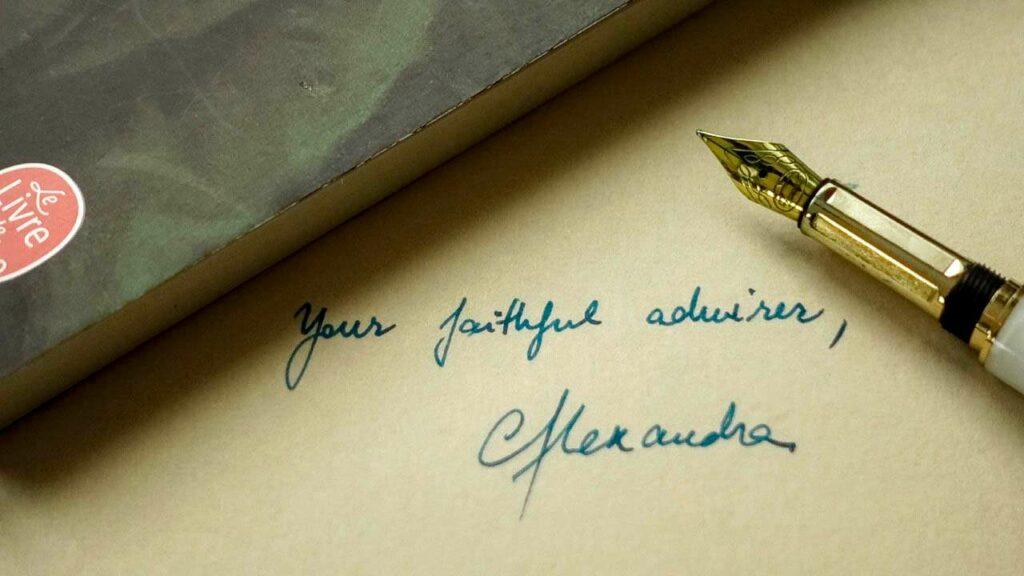 Le
Livre
Your faithful admirer,
Alexandra